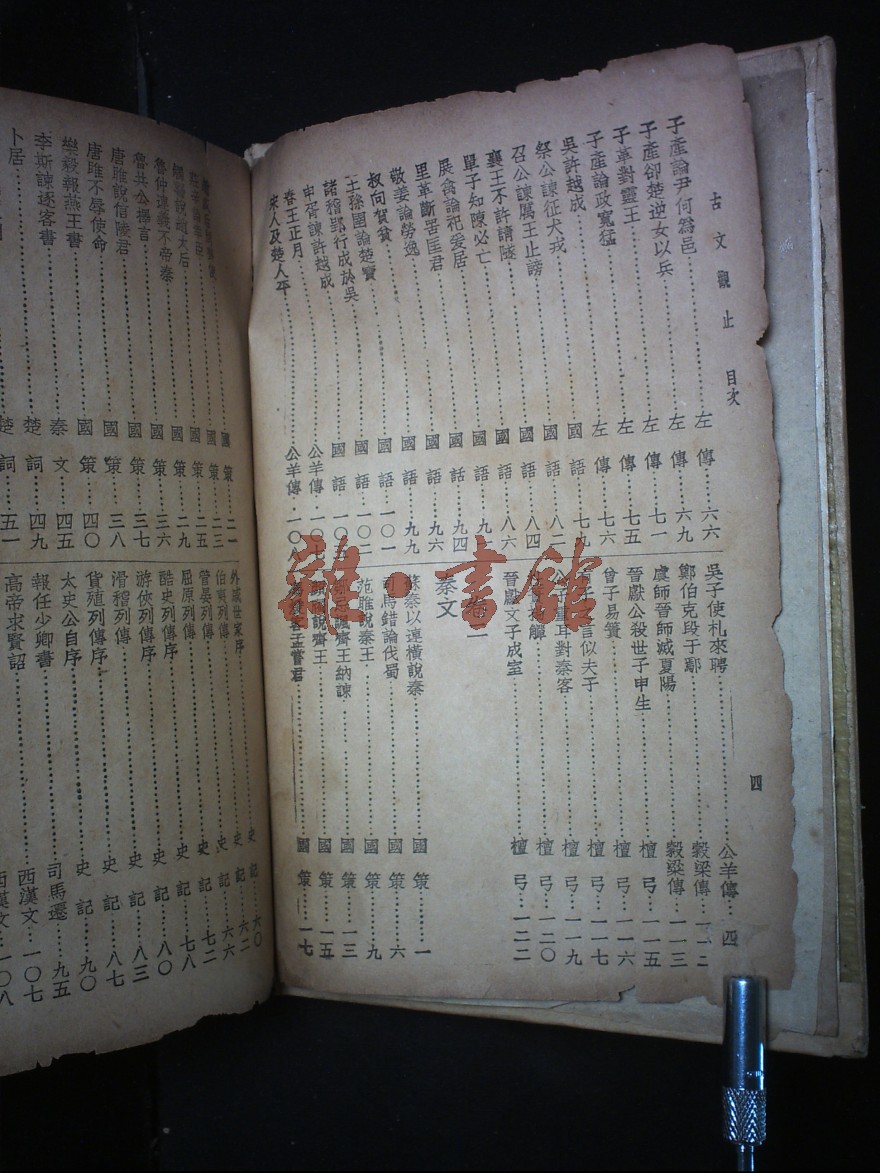 古文觀止 目次
四
子產論尹何爲邑 左傳 六六
子產卻楚逆女以兵 左傳 六九
子革對靈王 左傳 七一
子產論政寬猛 左傳 七五
吳許越成 左傳 七六
祭公諫征犬戎 國語 七九
召公諫厲王止謗 國語 八二
襄王不許請隧 國語 八四
單子知陳必亡 國語 八六
展禽論祀爰居 國語
里革斷罟匡君 國語 九四
敬姜論勞逸 國語 九六
叔向賀貧 國語 九九
王孫圉論楚寶 國語 一〇一
諸稽郢行成於吳 國語 一〇二
申胥諫許越成 國語 一〇五
春王正月 公羊傳 一〇七
宋人及楚人平 公羊傳 一〇八
吳子使札來聘 公羊傳
鄭伯克段于鄢 穀梁傳 一一二
虞師晉師滅夏陽 穀梁傳 一一三
晉獻公殺世子申生 檀弓 一一五
曾子易簀 檀弓 一一六
有子之言似夫子 檀弓 一一七
公子重耳對秦客 檀弓 一一九
杜蕢揚觶 檀弓 一二〇
晉獻文子成室 檀弓 一二二
卷二
秦文
蘇秦以連橫說秦 國策 一
司馬錯論伐蜀 國策 六
范雎說秦王 國策 九
鄒忌諷齊王納諫 國策 一三
顏斶說齊王 國策 一五
馮煖客孟嘗君 國策 一七
國策 二一
莊辛論幸臣 國策 二三
觸讋說趙太后 國策 二五
魯仲連義不帝秦 國策 二九
魯共公擇言 國策 三七
唐雎說信陵君 國策 三八
唐雎不辱使命 國策 四〇
樂毅報燕王書 秦文 四五
李斯諫逐客書 楚詞 四九
卜居 楚詞 五一
外戚世家序 史記 六〇
伯夷列傳 史記 六二
管晏列傳 史記 六六
屈原列傳 史記 七二
酷吏列傳序 史記 七八
游俠列傳序 史記 八〇
滑稽列傳 史記 八三
貨殖列傳序 史記 八七
太史公自序 史記 九〇
報任少卿書 司馬遷 九五
高帝求賢詔 西漢文 一〇七
西漢文 一〇八
雜·書館